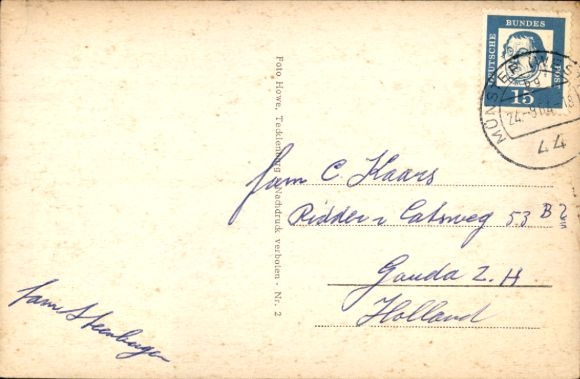 DEUTSCHE
BUNDES
POST
15
24.-8.
44
Foto Howe, Tecklenburg Nachdruck verboten - Nr. 2
fam C. Kaars
Ridder v Catsweg 53 B
Gouda Z. H.
Holland
fam Steenbergen